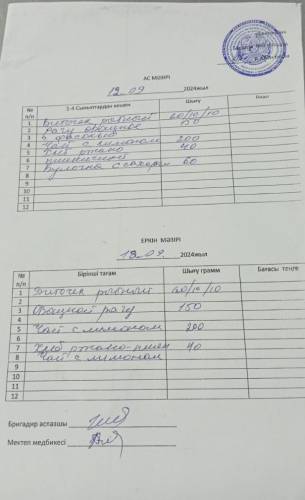 АС МӘЗІРІ
12.09 2024жыл
№ п/п 1-4 Сыныптардан кешен Шығу
1 Биточек рыбный 60/10/10
2 Рагу овощное 150
3 с фасолью
4 Чай с лимоном 200
5 Хлеб ржано 40
6 пшеничный
7 Булочка с сахаром 60
8
9
10
11
12
ЕРКІН МӘЗІРІ
12.09. 2024жыл
№ п/п Бірінші тағам Шығу грамм Бағасы теңге
1 Биточек рыбный 60/10/10
2
3 Овощной рагу 150
4
5 Чай с лимоном 200
6
7 Хлеб ржано-пшен 40
8 Чай с лимоном
9
10
11
12
Бригадир аспазшы
Мектеп медбикесі